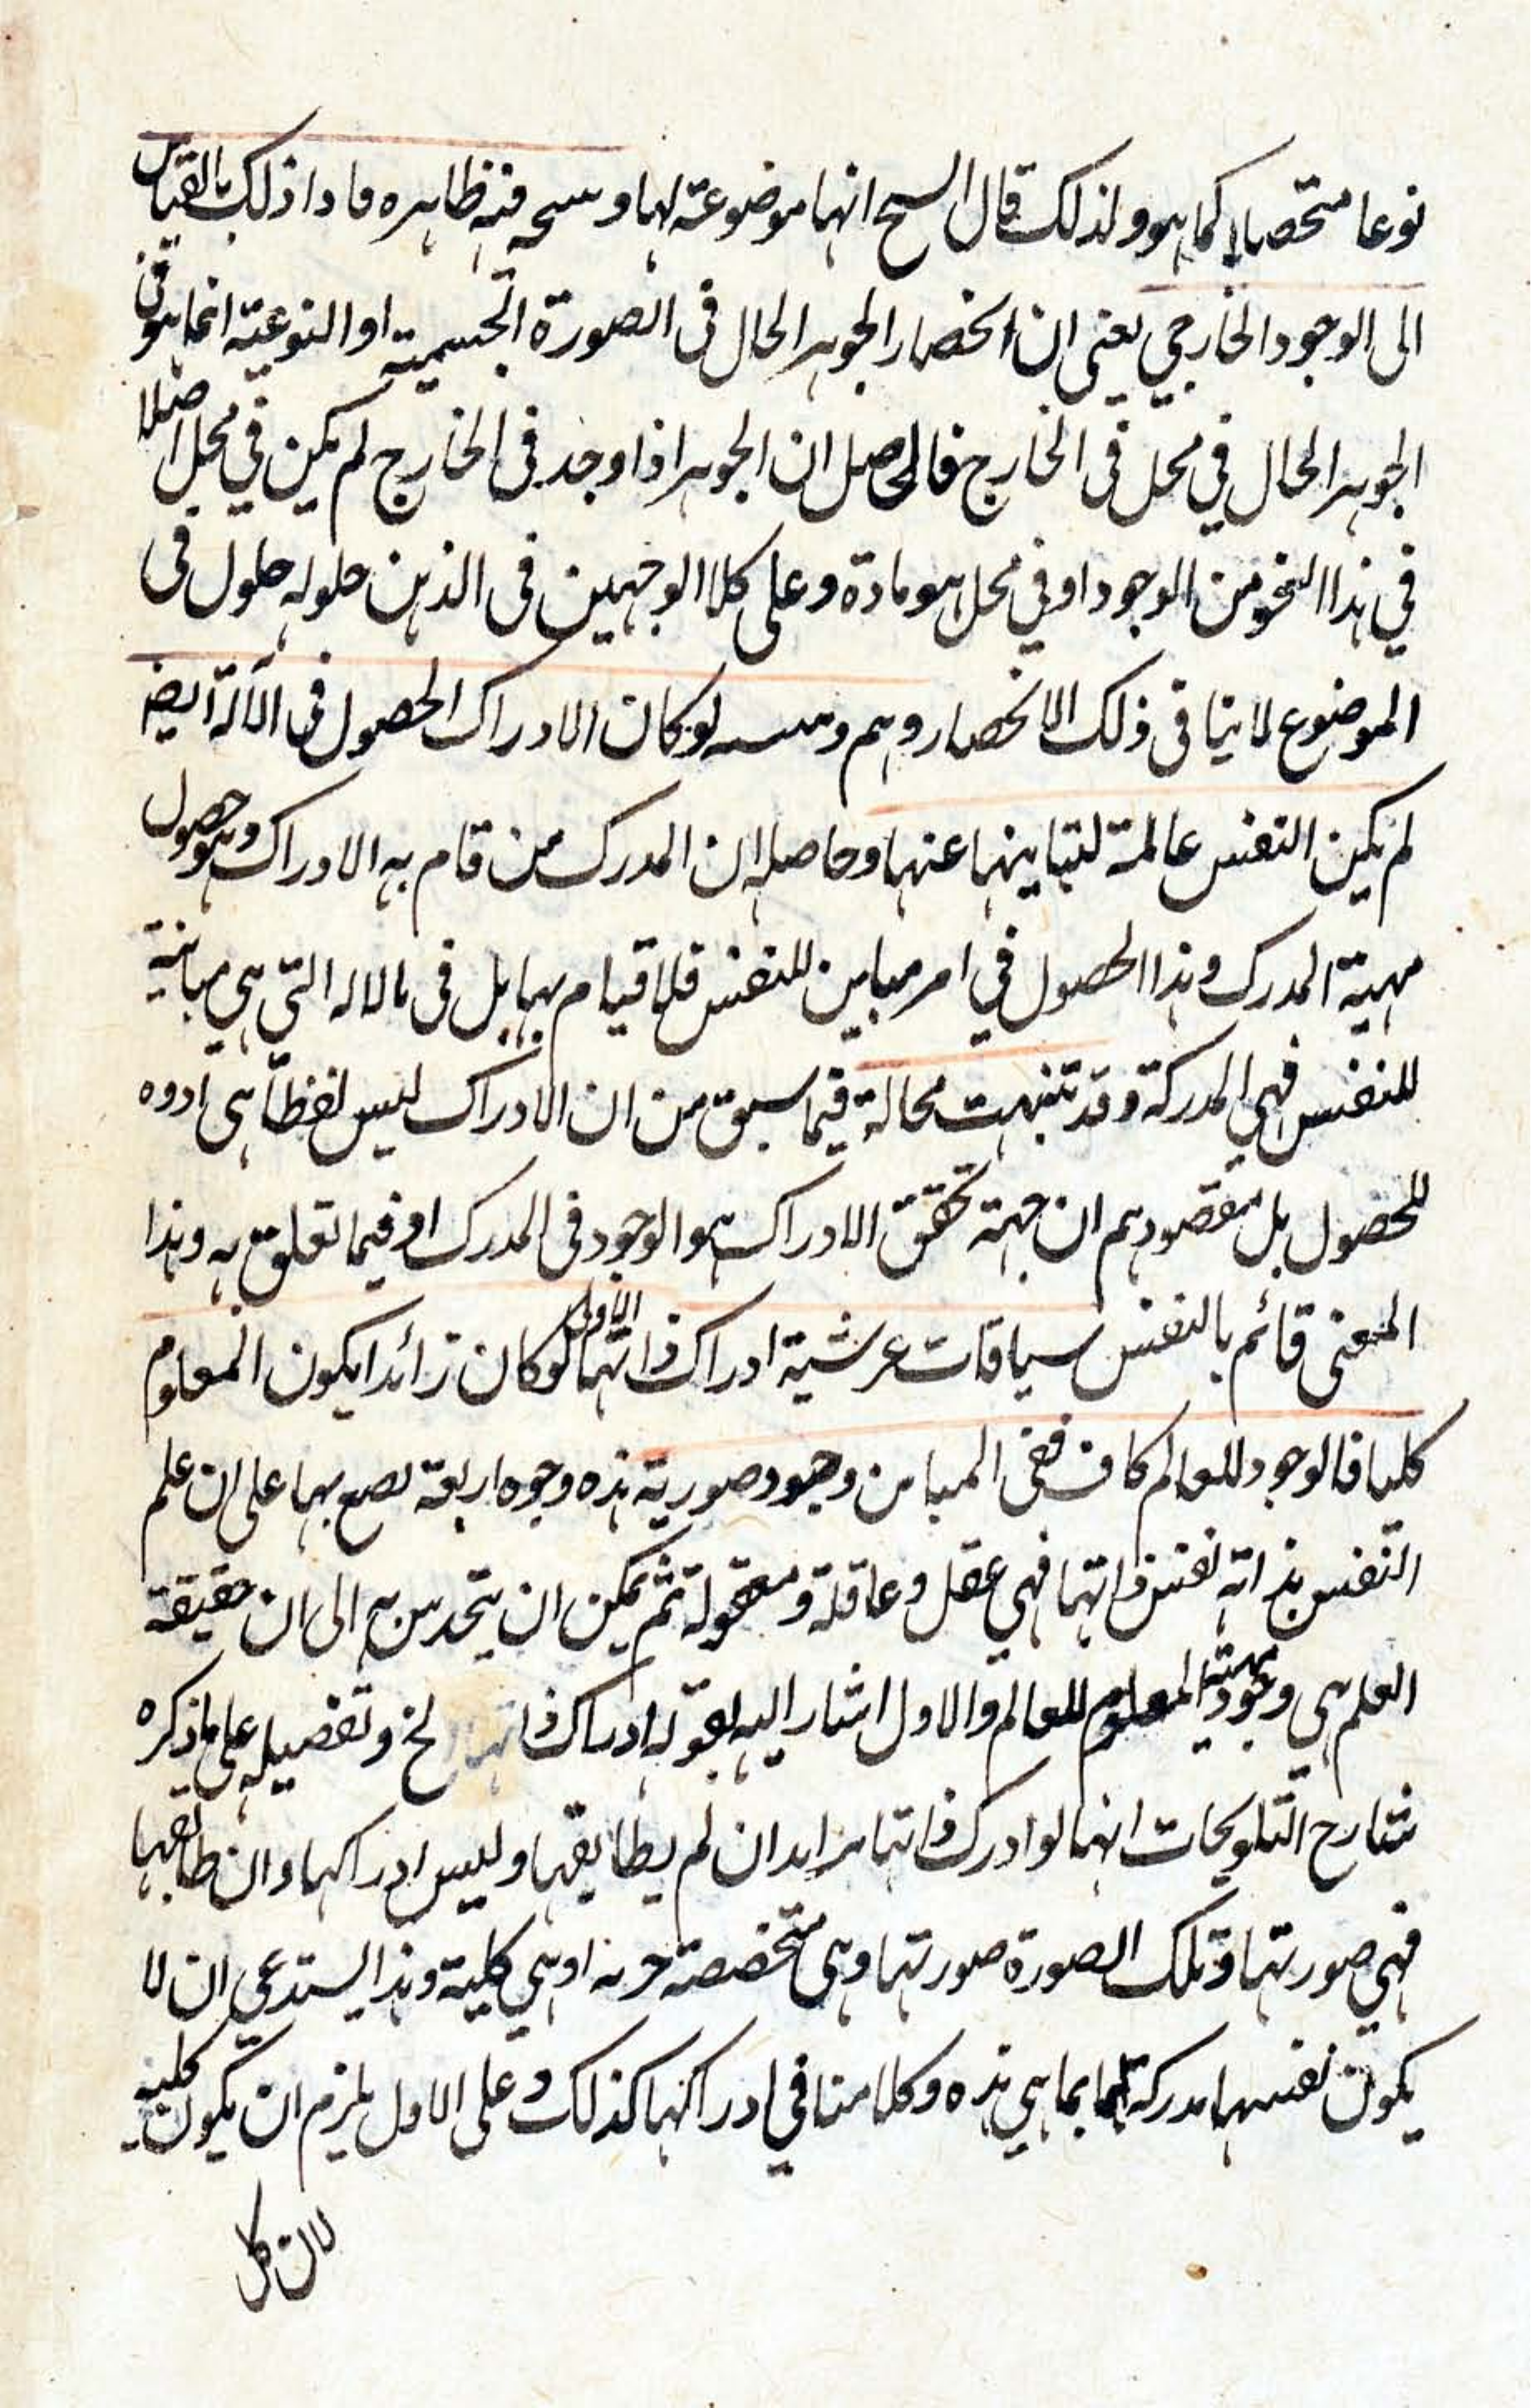 نوعا متحصلا كما هو ولذلك قال انها موضوعة لها و ظاهره ماداذلك بالقياس
الى الوجود الخارجي يعنى ان انحصار الجوهر الحال فى الصورة الجسمية او النوعية انما هو فى
الجوهر الحال في محل فى الخارج فالحاصل ان الجوهر اذا وجد فى الخارج لم يكن في محل اصلا
في هذا النحو من الوجود او في محل هو مادة وعلى كلا الوجهين فى الذهن حلوله حلول فى
الموضوع لا ينافى ذلك الانحصار وهم و لو كان الادراك الحصول فى الآلة ايضا
لم يكن النفس عالمة لتباينها عنها وحاصله ان المدرك من قام به الادراك وهو حصول
مهية المدرك وهذا الحصول في امر مباين للنفس فلا قيام بها بل فى الاله التي هي مباينة
للنفس فهي المدركة وقد تنبهت محاله فيما سبق من ان الادراك ليس لفظا
للحصول بل مقصودهم ان جهة تحقق الادراك هو الوجود فى المدرك او فيما تعلق به وهذا
المعنى قائم بالنفس سياقات عرشية ادراك ذاتها الاول لو كان زائدا يكون المعلوم
كليا فالوجود للعالم كاف ففى المباين وجود صورية هذه وجوه اربعة بها على ان علم
النفس بذاته نفس ذاتها فهي عقل وعاقلة ومعقولة ثم يمكن ان يتحدس به الى ان حقيقة
العلم هي وجودية مهية المعلوم للعالم والاول اشار اليه بقوله ادراك ذاتها الخ وتفصيله على ما ذكره
شارح التلويحات انها لو ادرك ذاتها ان لم يطابقها وليس ادراكها وان طابقها
فهي صورتها وتلك الصورة صورتها وهى متخصصة او هي كلية وهذا يستدعي ان لا
يكون نفسها مدركة لها بما هي هذه وكلامنا في ادراكها كذلك وعلى الاول يلزم ان يكون كلية
لان كل